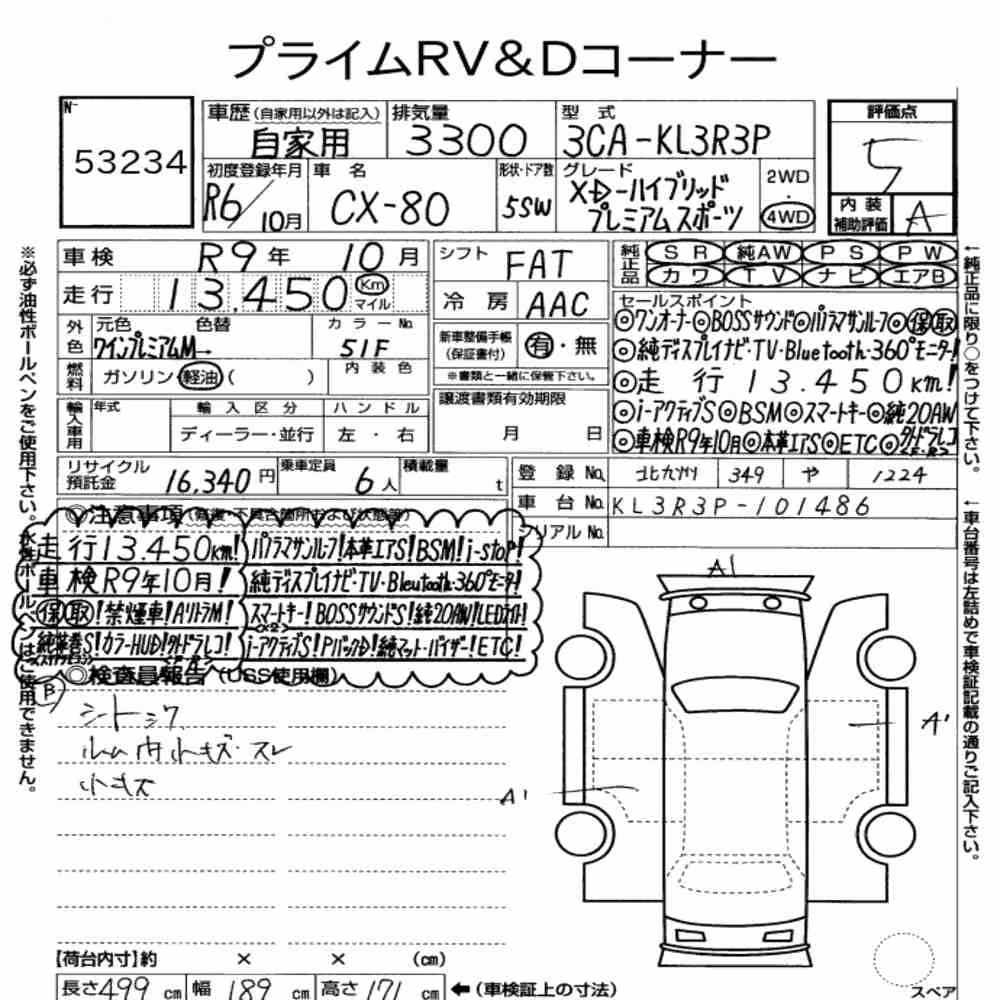 プライムRV&Dコーナー
No
53234
車歴(自家用以外は記入)
自家用
排気量
3300
型式
3CA-KL3R3P
評価点
5
初度登録年月
R6/10月
車名
CX-80
形状・ドア数
5SW
グレード
XD-ハイブリッド
プレミアムスポーツ
2WD
・
4WD
内装
補助評価
A
車検 R9年 10月
走行 13,450 Km マイル
外色
元色 色替
ワインプレミアムM
カラーNo.
51F
燃料
ガソリン・軽油( )
内装色
輸入車用
年式
輸入区分
ディーラー・並行
ハンドル
左・右
シフト
FAT
冷房
AAC
新車整備手帳
(保証書付)
有・無
※書類と一緒に保管下さい。
譲渡書類有効期限
月 日
純正品
SR 純AW PS PW
カワ TV ナビ エアB
セールスポイント
◎ワンオーナー◎BOSSサウンド◎パノラマサンルーフ◎保取
◎純ディスプレイナビ・TV・Bluetooth・360°モニター!
◎走行13.450km!
◎i-アクティブS◎BSM◎スマートキー◎純20AW
◎車検R9年10月◎本革エアS◎ETC◎
リサイクル
預託金
16,340円
乗車定員
6人
積載量
t
登録No.
北九州 349 や 1224
車台No.
KL3R3P-101486
シリアルNo.
◎注意事項
走行13.450km! パノラマサンルーフ!本革エアS!BSM!i-stop!
車検R9年10月! 純ディスプレイナビ・TV・Bleutooth・360°モニタ!
保取!禁煙車! スマートキー!BOSSサウンドS!純20AW!LEDライト!
カラーHUD! i-アクティブS!Pバックドア!純マット・バイザー!ETC!
◎検査員報告(USS使用欄)
B
シートシワ
ルーム内小キズ・スレ
小キズ
A1
A1
A1
【荷台内寸】約 × × (cm)
長さ499cm 幅189cm 高さ171cm ←(車検証上の寸法)
スペア
※必ず油性ボールペンをご使用下さい。水性ボールペンはご使用できません。
↑純正品に限り○をつけて下さい。
↑車台番号は左詰めで車検証記載の通りご記入下さい。